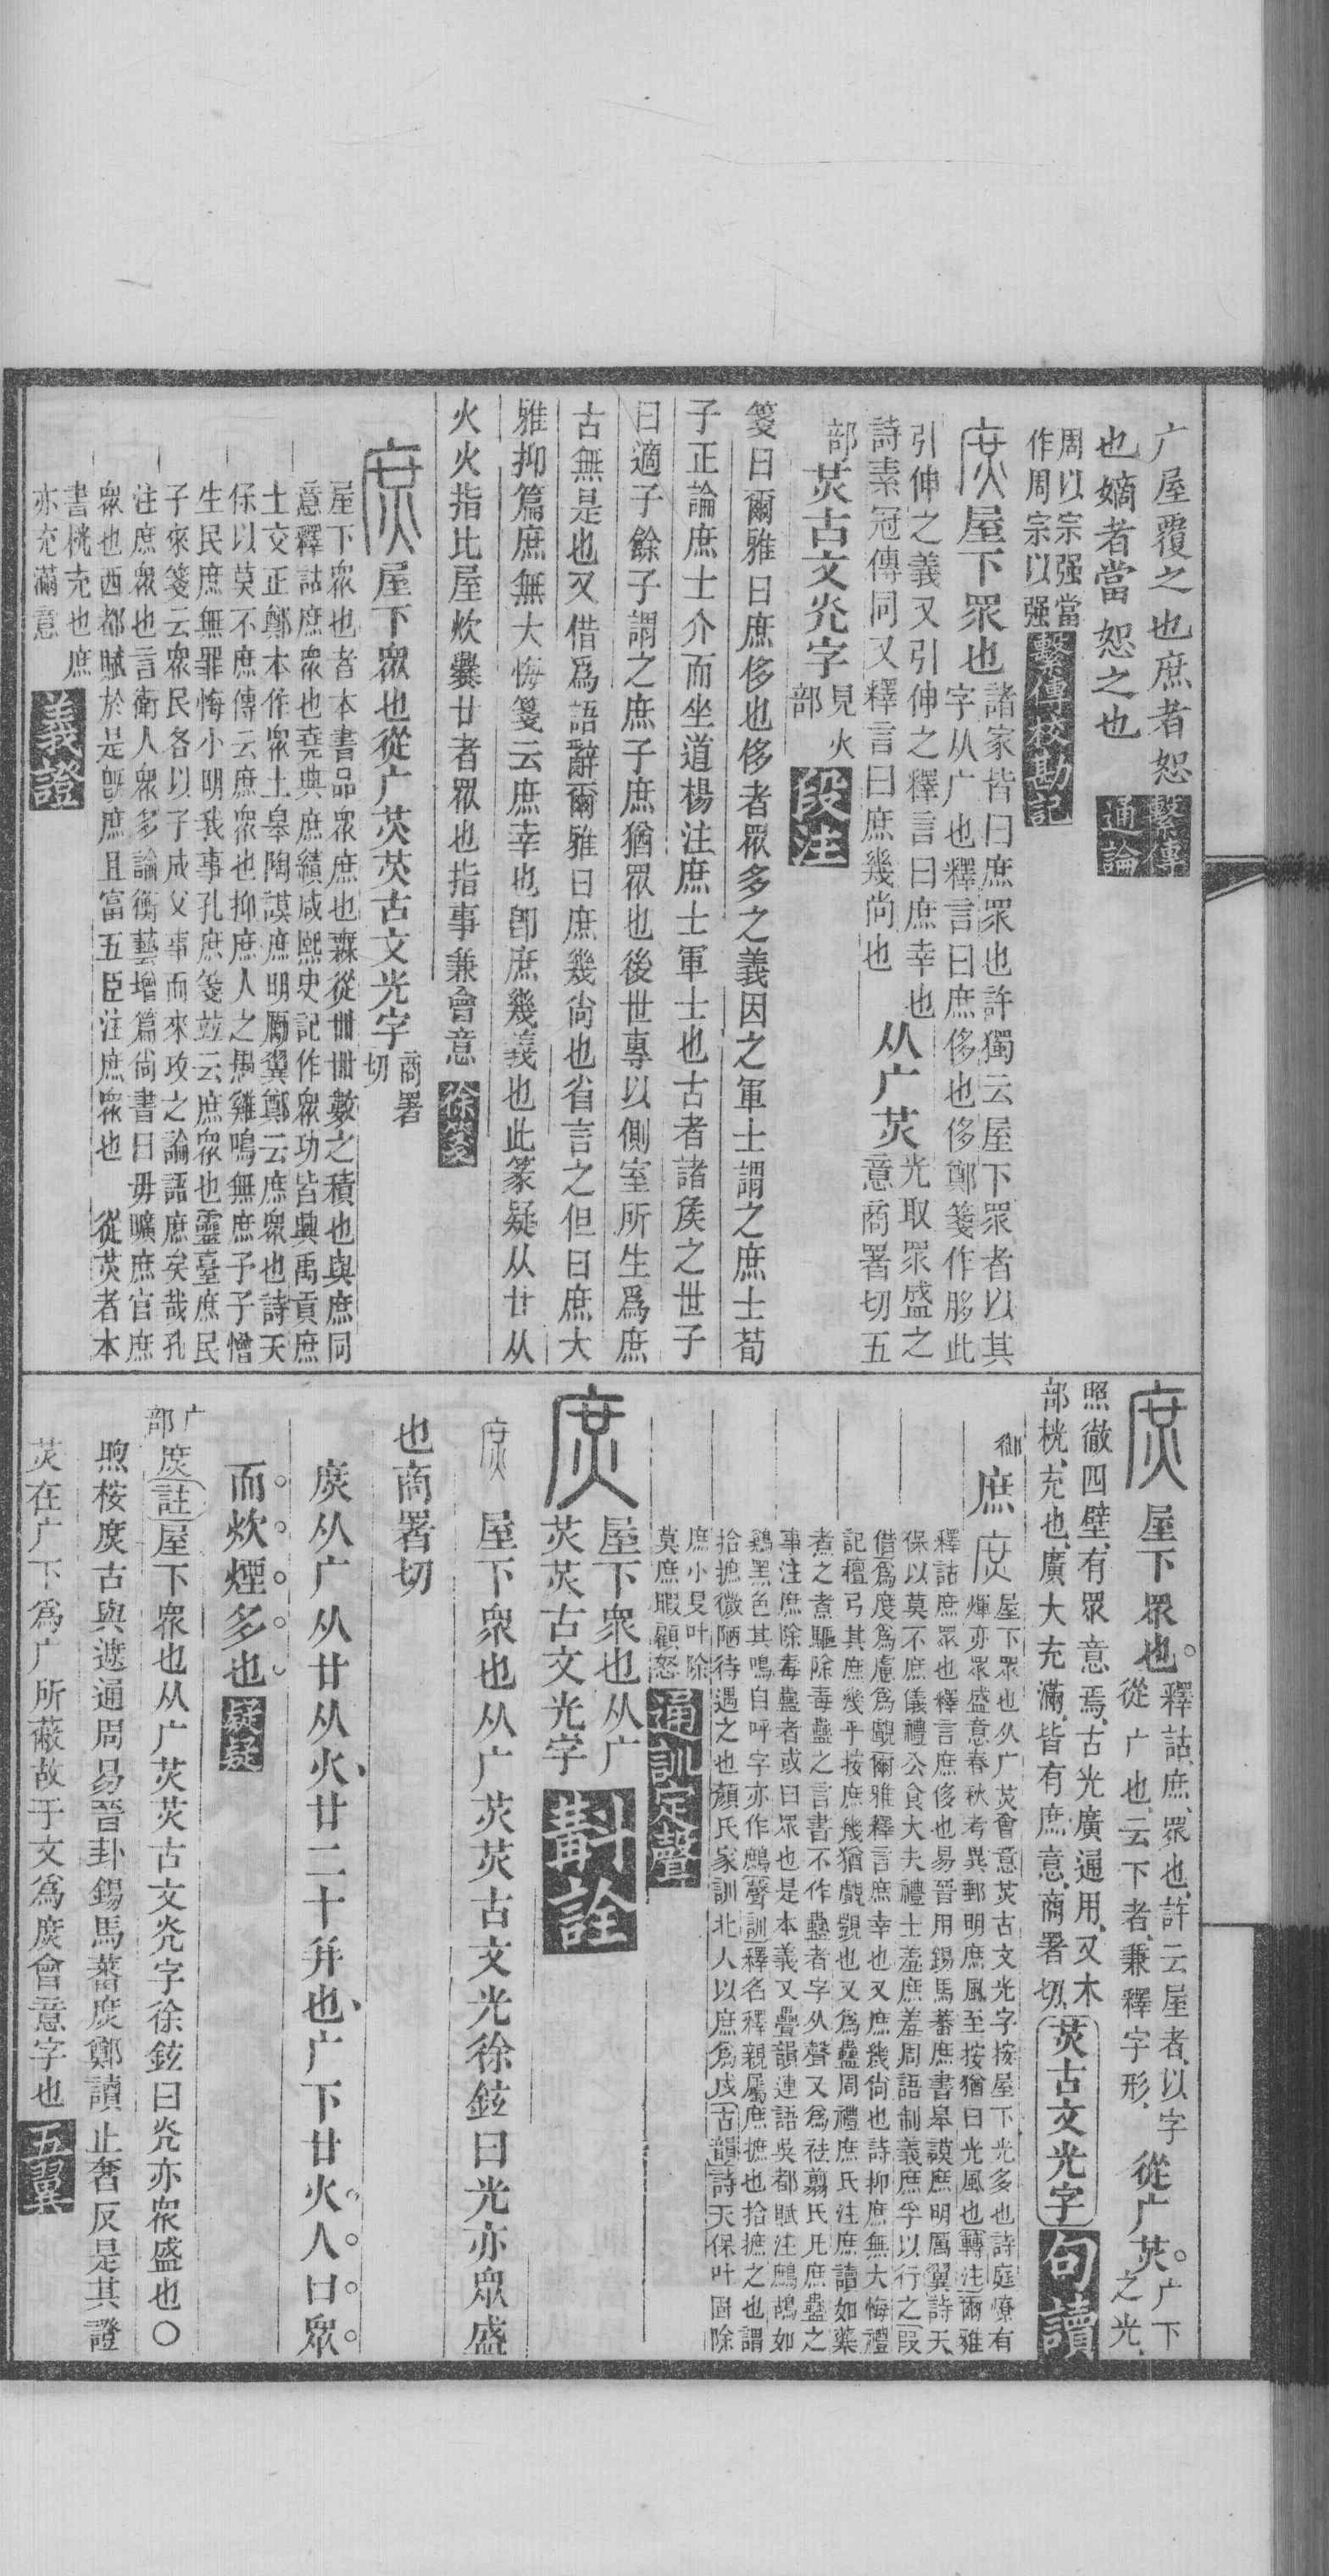 广屋覆之也庶者恕
也嫡者當恕之也
繫傳
通論
周以宗强當
作周宗以强
繫傳校勘記
庶屋下眾也
諸家皆曰庶眾也許獨云屋下眾者以其
字从广也釋言曰庶侈也侈鄭箋作䏧此
引伸之義又引伸之釋言曰庶幸也
詩素冠傳同又釋言曰庶幾尚也
从广炗
光取眾盛之
意商署切五
部
炗古文灮字
見火
部
段注
箋曰爾雅曰庶侈也侈者眾多之義因之軍士謂之庶士荀
子正論庶士介而坐道楊注庶士軍士也古者諸矦之世子
曰適子餘子謂之庶子庶猶眾也後世專以側室所生爲庶
古無是也又借爲語辭爾雅曰庶幾尙也省言之但曰庶大
雅抑篇庶無大悔箋云庶幸也卽庶幾義也此篆疑从廿从
火火指比屋炊爨廿者眾也指事兼會意
徐箋
庶屋下眾也從广炗炗古文光字
商署
切
屋下眾也者本書品眾庶也橆從卌卌數之積也與庶同
意釋詁庶眾也堯典庶績咸熙史記作眾功皆興禹貢庶
士交正鄭本作眾土皋陶謨庶明厲翼鄭云庶眾也詩天
保以莫不庶傳云庶眾也抑庶人之愚雞鳴無庶予子憎
生民庶無罪悔小明我事孔庶箋竝云庶眾也靈臺庶民
子來箋云眾民各以子成父事而來攻之論語庶矣哉孔
注庶眾也言衛人眾多論衡藝增篇尙書曰毋曠庶官庶
眾也西都賦於是旣庶且富五臣注庶眾也 從炗者本
書桄充也庶
亦充滿意
義證
庶屋下眾也
釋詁庶眾也許云屋者以字
從广也云下者兼釋字形
從广炗
广下
之光
照徹四壁有眾意焉古光廣通用又木
部桄充也廣大充滿皆有庶意商署切
炗古文光字
句讀
御
庶
庶
屋下眾也从广炗會意炗古文光字按屋下光多也詩庭燎有
煇亦眾盛意春秋考異郵明庶風至按猶曰光風也轉注爾雅
釋詁庶眾也釋言庶侈也易晉用錫馬蕃庶書皋謨庶明厲翼詩天
保以莫不庶儀禮公食大夫禮士羞庶羞周語制義庶孚以行之叚
借爲度爲慮爲覬爾雅釋言庶幸也又庶幾尙也詩抑庶無大悔禮
記檀弓其庶幾乎按庶幾猶覬覦也又爲蠱周禮庶氏注庶讀如藥
煮之煮驅除毒蠱之言書不作蠱者字从聲又爲袪翦氏凡庶蠱之
事注庶除毒蠱者或曰眾也是本義又疊韻連語吳都賦注鷓鴣如
鷄黑色其鳴自呼字亦作鷓聲訓釋名釋親屬庶摭也拾摭之也謂
拾摭微陋待遇之也顏氏家訓北人以庶爲戍古韻詩天保叶固除
庶小旻叶除
莫庶暇顧怒
通訓定聲
庶
屋下眾也从广
炗炗古文光字
斠詮
庶 屋下眾也从广炗炗古文光徐鉉曰光亦眾盛
也商署切
庶从广从廿从火廿二十并也广下廿火人曰眾
而炊煙多也
疑疑
广
部
庶註屋下眾也从广炗炗古文灮字徐鉉曰灮亦眾盛也〇
煦桉庶古與遮通周易晉卦錫馬蕃庶鄭讀止奢反是其證
炗在广下爲广所蔽故于文爲庶會意字也
五翼